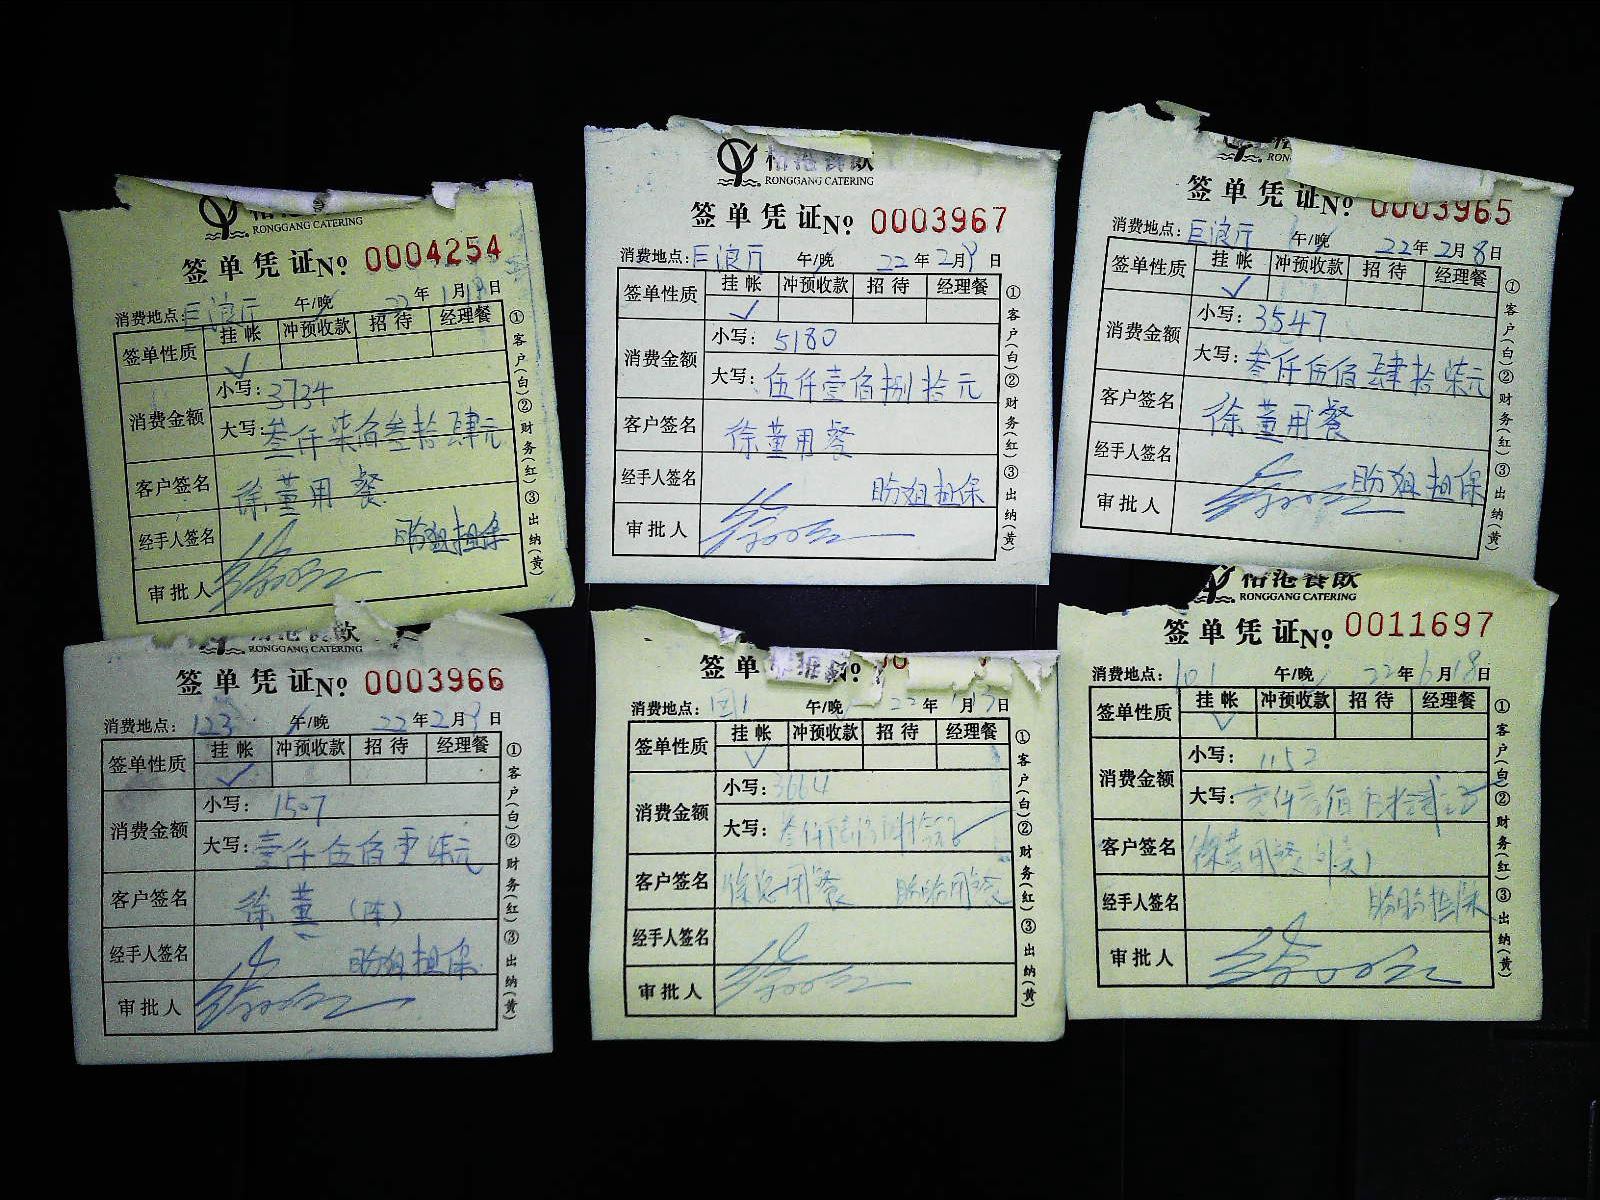 RONGGANG CATERING
签单凭证 No. 0004254
消费地点: 巨浪厅 午/晚 22年1月18日
签单性质 挂帐 冲预收款 招待 经理餐
✓
消费金额 小写: 3734
大写: 叁仟柒佰叁拾肆元
客户签名 徐董用餐
经手人签名 盼姐担保
审批人
①客户(白)②财务(红)③出纳(黄)
榕港餐飲
RONGGANG CATERING
签单凭证 No. 0003967
消费地点: 巨浪厅 午/晚 22年2月9日
签单性质 挂帐 冲预收款 招待 经理餐
✓
消费金额 小写: 5180
大写: 伍仟壹佰捌拾元
客户签名 徐董用餐
经手人签名 盼姐担保
审批人
①客户(白)②财务(红)③出纳(黄)
签单凭证 No. 0003965
消费地点: 巨浪厅 午/晚 22年2月8日
签单性质 挂帐 冲预收款 招待 经理餐
✓
消费金额 小写: 3547
大写: 叁仟伍佰肆拾柒元
客户签名 徐董用餐
经手人签名 盼姐担保
审批人
①客户(白)②财务(红)③出纳(黄)
RONGGANG CATERING
签单凭证 No. 0003966
消费地点: 123 午/晚 22年2月9日
签单性质 挂帐 冲预收款 招待 经理餐
✓
消费金额 小写: 1507
大写: 壹仟伍佰零柒元
客户签名 徐董(陈)
经手人签名 盼姐担保
审批人
①客户(白)②财务(红)③出纳(黄)
签单
消费地点: 午/晚 22年 月13日
签单性质 挂帐 冲预收款 招待 经理餐
✓
消费金额 小写: 3664
大写: 叁仟
客户签名 徐总用餐 盼盼用餐
经手人签名
审批人
①客户(白)②财务(红)③出纳(黄)
榕港餐飲
RONGGANG CATERING
签单凭证 No. 0011697
消费地点: 101 午/晚 22年6月18日
签单性质 挂帐 冲预收款 招待 经理餐
✓
消费金额 小写: 1152
大写:
客户签名 徐董用餐
经手人签名 盼盼担保
审批人
①客户(白)②财务(红)③出纳(黄)